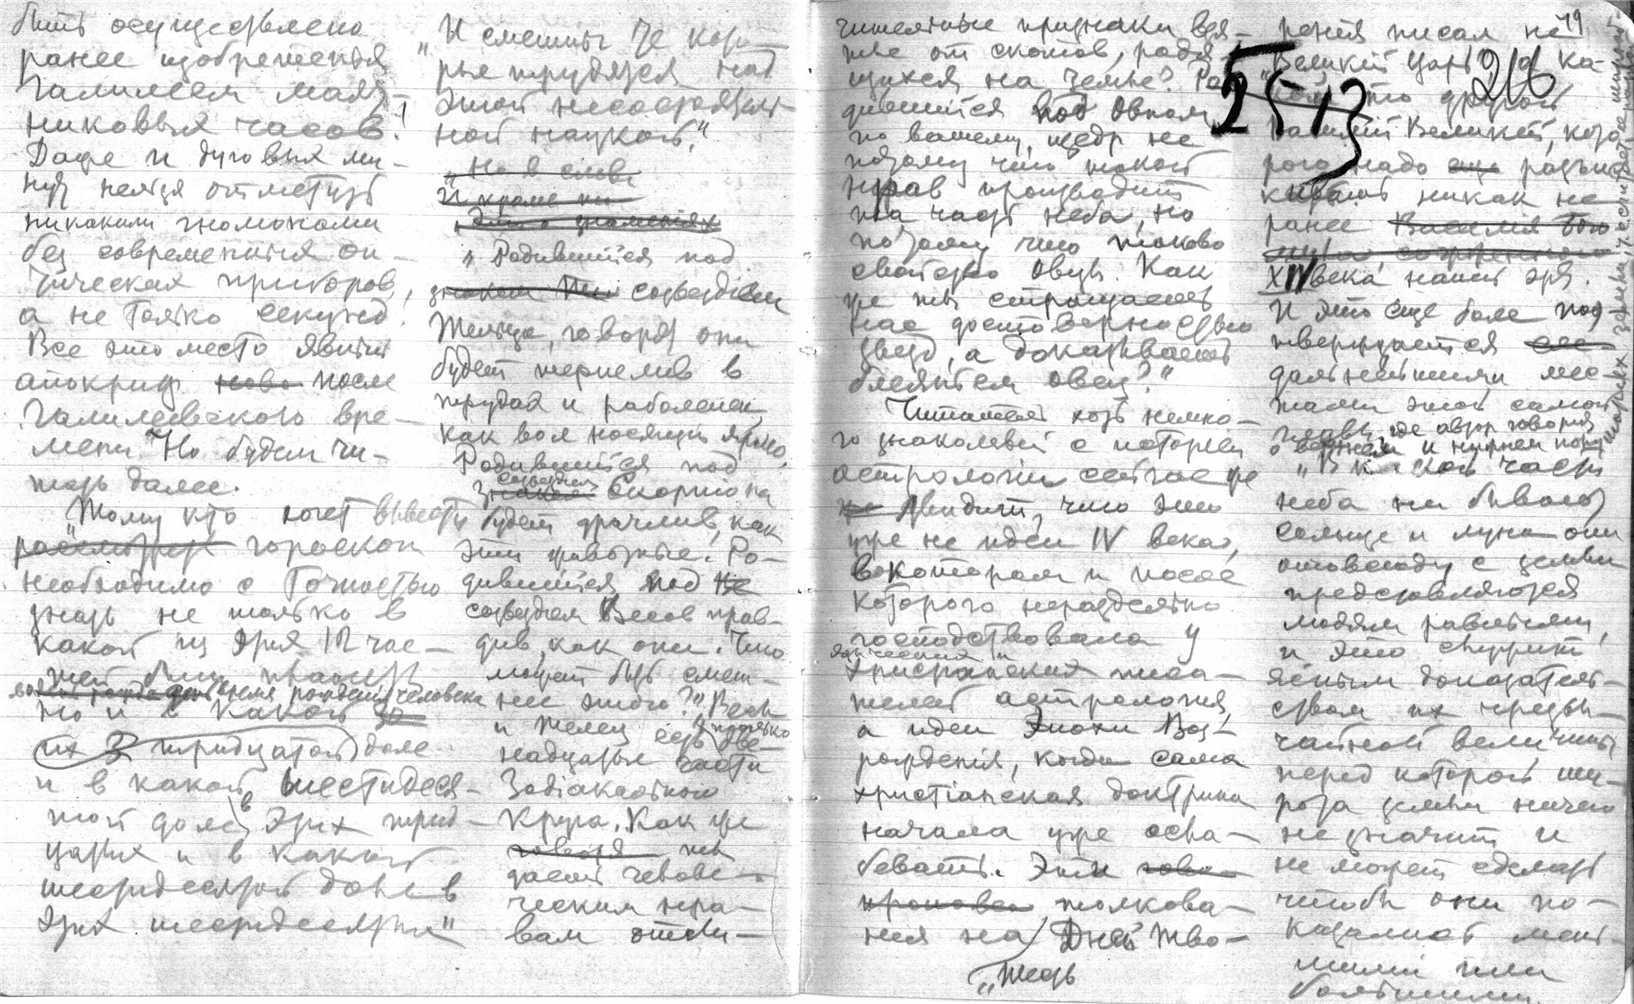 быть осуществлено
ранее изобретения
Галилеем маят-
никовых часов!
Даже и дуговых ми-
нут нельзя отметить
никакими гномонами
без современных оп-
тических приборов,
а не только секунд.
Все это место явный
апокриф ново после
Галилеевского вре-
мени. Но будем чи-
тать далее.
"Тому кто хочет вывести
рассмотрет гороскоп
необходимо с точностью
знать не только в
какой из этих 12 час-
тей
время рождения человека
но и в какой
их тридцатой доле
и в какой шестидеся-
той доле этих трид-
цатых и в какой
шестидесятой доле в
этих шестидесятых"
"И смешны те кото-
рые трудятся над
этой несостоятель-
ной наукой."
"Но в след
И кроме
"Родившийся под
знаком созвездием
Тельца, говорят они
будет терпелив в
трудах и раболепен,
как вол носящий ярмо.
Родившийся под
созвездием
знаком Скорпиона
будет драчлив, как
эти животные. Ро-
дившийся под
созвездием Весов прав-
див, как они. Что
может быть смеш-
нее этого?" Весы
и Телец есть только две-
надцатые части
Зодіакального
Круга. Как же
говоря ты
даешь челове-
ческим нра-
вам отли-
чительные признаки взя-
тые от скотов, родя-
щихся на земле? Ро-
дившийся под Овном
по вашему, щедр не
потому что такой
нрав производит
та часть неба, но
потому что таково
свойство овцы. Как
же ты стращаешь
нас достоверностью
звезд, а доказываешь
блеяньем овец?"
Читатель хоть немно-
го знакомый с историей
астрологии сейчас же
увидит, что это
уже не идеи IV века,
в котором и после
которого нераздельно
господствовала у
языческих и
христианских писа-
телей астрология,
а идеи Эпохи Воз-
рождения, когда сама
христіанская доктрина
начала уже осла-
бевать. Эти гово-
толкова-
ния на Дней Тво-
"Шесть
рения писал не
"Великий Царь", а ка-
кой-то другой
Василий Великий, кото-
рого надо еще разыс-
кивать никак не
ранее
XIV века нашей эры.
И это еще более под-
тверждается его
дальнейшими мес-
тами этой самой
главы, где автор говорит
"В какой части
неба ни бывают
солнце и луна они
отовсюду с земли
представляются
людям равными,
и это служит
ясным доказатель-
ством их чрезвы-
чайной величины
перед которой ши-
рота земли ничего
не значит и
не может сделать
чтобы они по-
казались мень-
шими или
большими
19
216
25-13